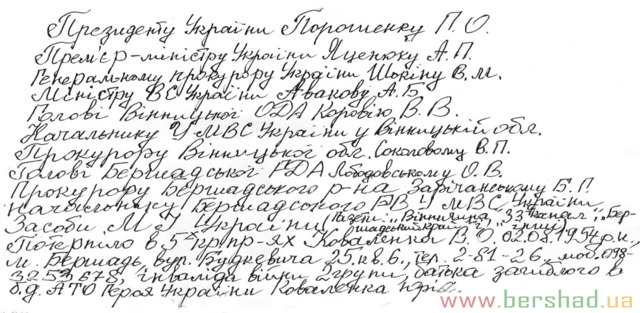 Президенту України Порошенку П.О.
Прем'єр-міністру України Яценюку А.П.
Генеральному прокурору України Шокіну В.М.
Міністру ВС України Авакову А.Б.
Голові Вінницької ОДА Коровію В.В.
Начальнику УМВС України у Вінницькій обл.
Прокурору Вінницької обл. Соколовому В.П.
Голові Бершадської РДА Лободовському О.В.
Прокурору Бершадського р-на Зарічанському Б.Г.
Начальнику Бершадського РВ УМВС України
Засоби М І України (газети: "Вінничина", "33 канал", "Бершадський край" і інші)
Потерпіло в 5 кр пр-ях Коваленка В.О. 02.08.1954 р.н.
м. Бершадь, вул. Будкевича 25. кв. 6, тел. 2-81-26, моб. 098-
3253678, інваліда війни 2 групи, батька загиблого в
б.д. АТО Героя України Коваленка Юрія.
www.bershad.ua